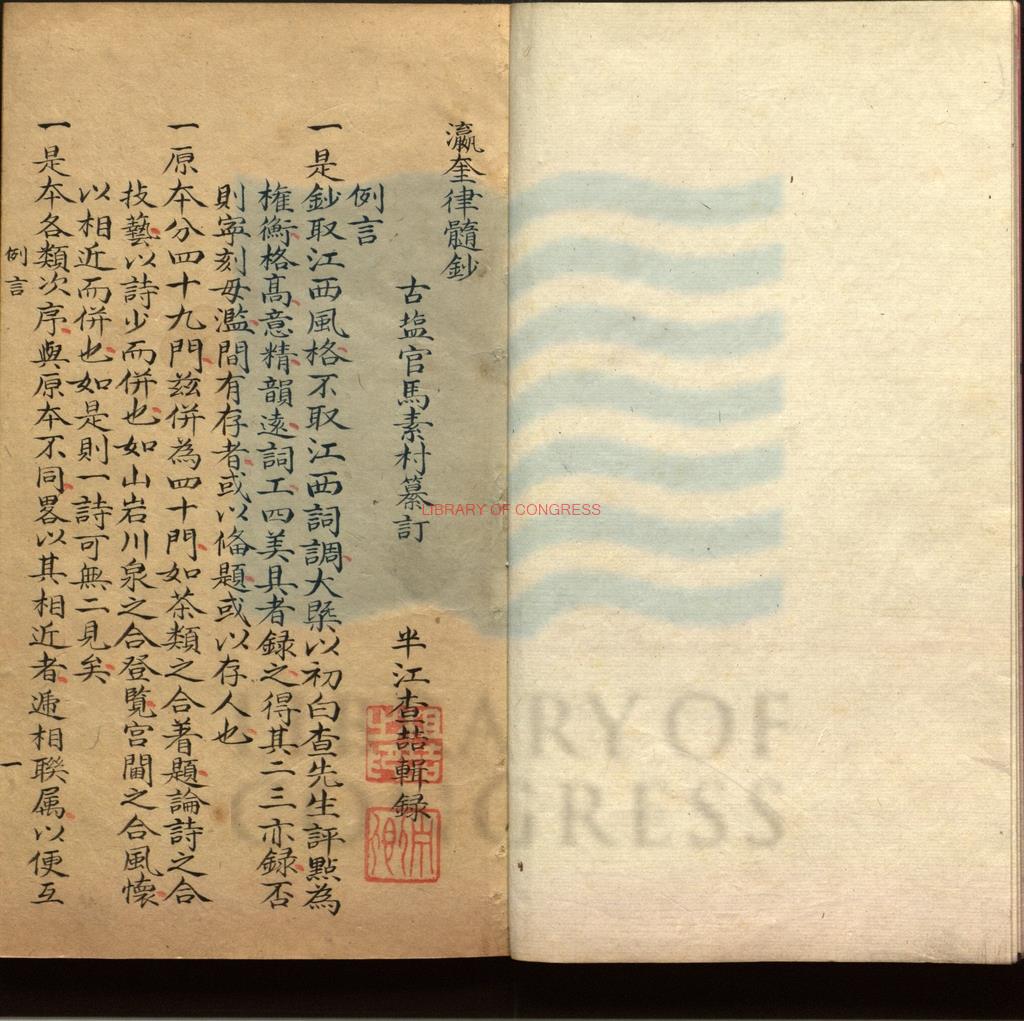 瀛奎律髓鈔
古塩官馬素村纂訂
半江查喆輯録
例言
一是鈔取江西風格不取江西詞調大槩以初白查先生評點為
權衡格髙意精韻逺詞工四美具者録之得其二三亦録否
則寜刻毋濫間有存者或以偹題或以存人也
一原本分四十九門兹併為四十門如茶類之合着題論詩之合
技藝以詩少而併也如山岩川泉之合登覧宫閫之合風懷
以相近而併也如是則一詩可無二見矣
一是本各類次序與原本不同畧以其相近者遞相聨属以便互
例言
一
LIBRARY OF CONGRESS
LIBRARY OF
CONGRESS